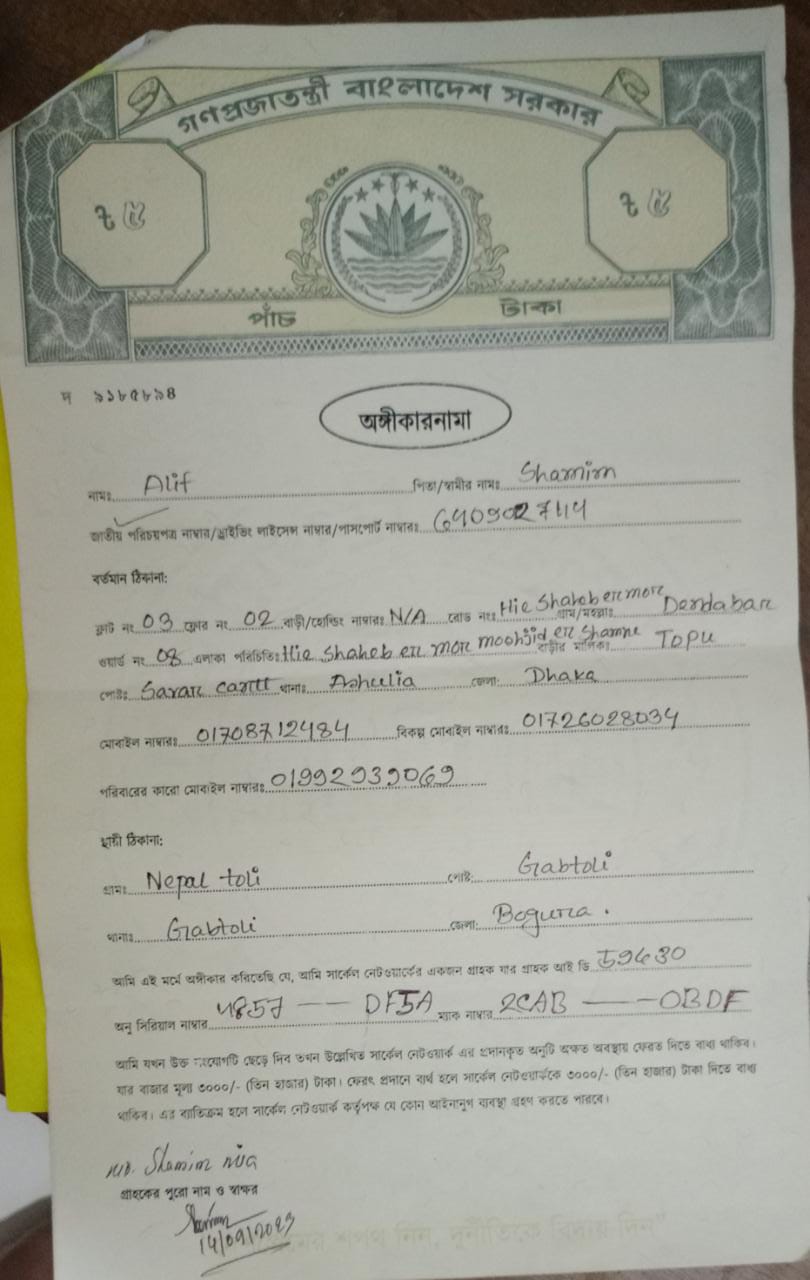 গণপ্রজাতন্ত্রী বাংলাদেশ সরকার
৳ ৫ ৳ ৫
পাঁচ টাকা
দ ৯১৮৫৮৯৪
অঙ্গীকারনামা
নামঃ Alif পিতা/স্বামীর নামঃ Shamim
জাতীয় পরিচয়পত্র নাম্বার/ড্রাইভিং লাইসেন্স নাম্বার/পাসপোর্ট নাম্বারঃ
বর্তমান ঠিকানা:
ফ্লাট নং 03 ফ্লোর নং 02 বাড়ী/হোল্ডিং নাম্বারঃ N/A রোড নংঃ Hie Shaheb er more গ্রাম/মহল্লাঃ Dendabar
ওয়ার্ড নং 08 এলাকা পরিচিতিঃ Hie Shaheb er more moshjid er shamne বাড়ীর মালিকঃ Topu
পোষ্টঃ Savar cantt থানাঃ Ashulia জেলা: Dhaka
মোবাইল নাম্বারঃ 01708712484 বিকল্প মোবাইল নাম্বারঃ 01726028034
পরিবারের কারো মোবাইল নাম্বারঃ 01992939069
স্থায়ী ঠিকানা:
গ্রামঃ Nepal toli পোষ্ট: Gabtoli
থানাঃ Gabtoli জেলা: Bogura.
আমি এই মর্মে অঙ্গীকার করিতেছি যে, আমি সার্কেল নেটওয়ার্কের একজন গ্রাহক যার গ্রাহক আই ডি 59630
অনু সিরিয়াল নাম্বার 4857 — DF5A ম্যাক নাম্বার 2CAB — OBDF
আমি যখন উক্ত সংযোগটি ছেড়ে দিব তখন উল্লেখিত সার্কেল নেটওয়ার্ক এর প্রদানকৃত অনুটি অক্ষত অবস্থায় ফেরত দিতে বাধ্য থাকিব।
যার বাজার মূল্য ৩০০০/- (তিন হাজার) টাকা। ফেরৎ প্রদানে ব্যর্থ হলে সার্কেল নেটওয়ার্ককে ৩০০০/- (তিন হাজার) টাকা দিতে বাধ্য
থাকিব। এর ব্যতিক্রম হলে সার্কেল নেটওয়ার্ক কর্তৃপক্ষ যে কোন আইনানুগ ব্যবস্থা গ্রহণ করতে পারবে।
MD. Shamim Mia
গ্রাহকের পুরো নাম ও স্বাক্ষর
14/09/2023
শপথ নিন, দুর্নীতিকে বিদায় দিন"